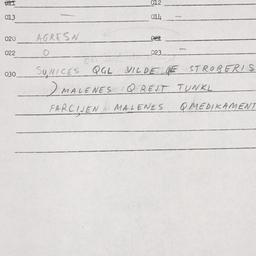 011 012
013 — 014 —
020 AGRESN 021
022 O 023 —
030 SUHICES QGL VILDE STROBERIS
) MALENES Q REJT TUNKL
FARCIJEN MALENES QMEDIKAMENT